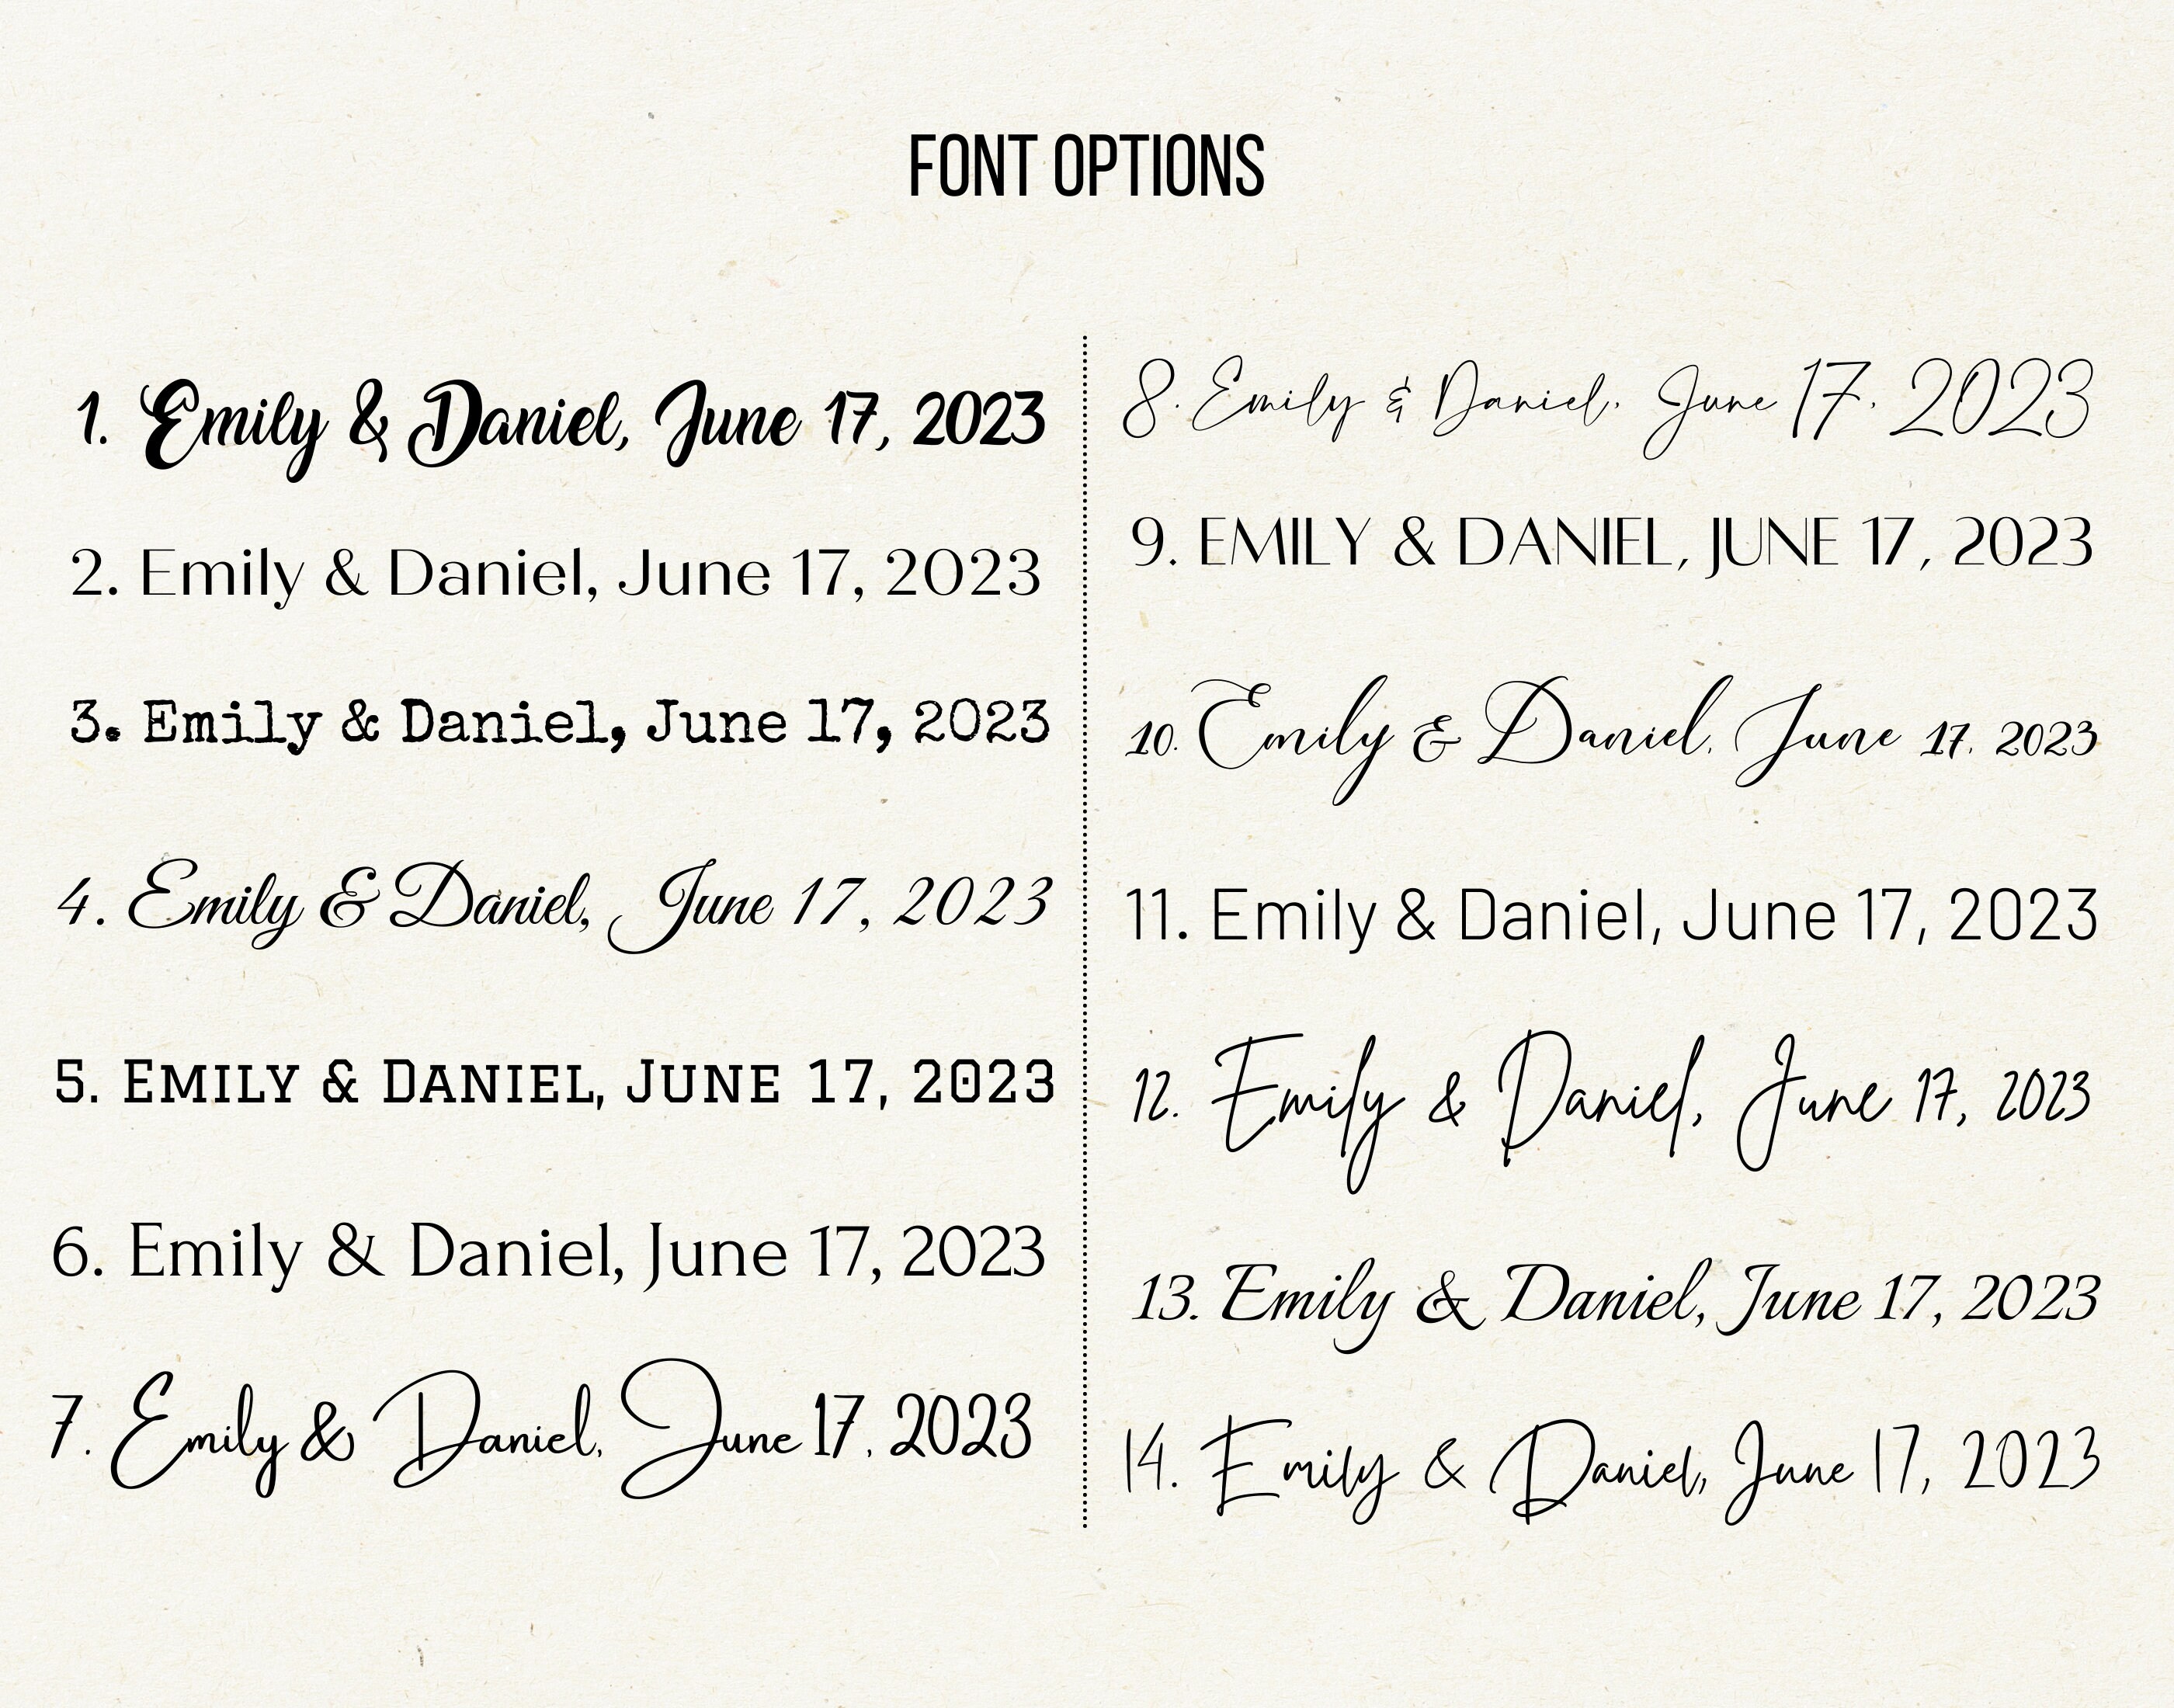 FONT OPTIONS
1. Emily & Daniel, June 17, 2023
2. Emily & Daniel, June 17, 2023
3. Emily & Daniel, June 17, 2023
4. Emily & Daniel, June 17, 2023
5. EMILY & DANIEL, JUNE 17, 2023
6. Emily & Daniel, June 17, 2023
7. Emily & Daniel, June 17, 2023
8. Emily & Daniel, June 17, 2023
9. EMILY & DANIEL, JUNE 17, 2023
10. Emily & Daniel, June 17, 2023
11. Emily & Daniel, June 17, 2023
12. Emily & Daniel, June 17, 2023
13. Emily & Daniel, June 17, 2023
14. Emily & Daniel, June 17, 2023